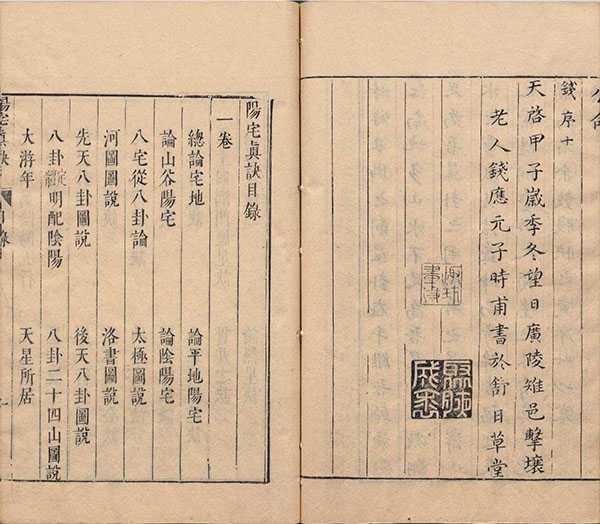 錢序十
天啓甲子嵗季冬望日廣陵雉邑擊壤
老人錢應元子時甫書於舒日草堂
陽宅眞訣目錄
一卷
總論宅地 論平地陽宅
論山谷陽宅 論陰陽宅
八宅從八卦論 太極圖說
河圖圖說 洛書圖說
先天八卦圖說 後天八卦圖說
八卦明配陰陽 八卦二十四山圖說
大游年 天星所居
陽宅眞訣 目錄